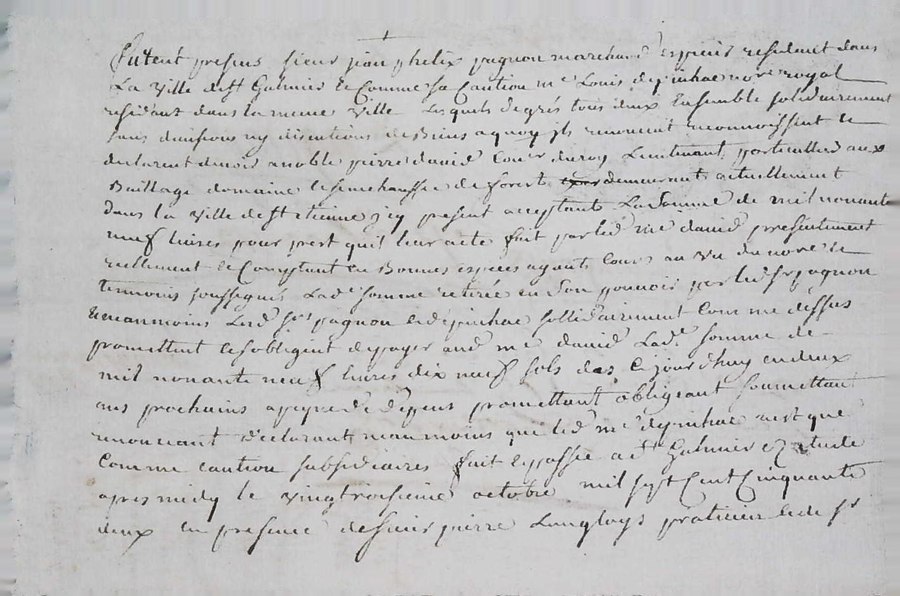 furent presens sieur jean phelix pagnon marchand Espicier residant dans
La Ville de St Galmier et Comme sa Caution me Louis depinhac nore royal
residant dans la meme Ville Lesquels de grés tous deux Ensemble solidairement
sans division ny discutions de Biens a quoy ils renoncent reconnoissent et
declarent devoir a noble pierre david Coner du roy Lieutenant particullier aux
Bailliage domaine et senechaussée de forest demeurant actuellement
dans la Ville de St etienne icy present acceptant La somme de mil nonante
neuf livres pour prest qu'il leur a eté fait par led me david presentement
reellement et Comptant en Bonnes especes ayant Cours au vu du nore et
temoins soussignés Lade somme retirée en son pouvoir par led sr pagnon
Et neanmoins Lesd srs pagnon et depinhac sollidairement Comme dessus
promettent et sobligent de payer aud me david Lade somme de
mil nonante neuf livres dix neuf sols des Ce jourdhuy en deux
ans prochains a peyne de depens promettant obligeant soumettant
renonceant declarant neanmoins que led me depinhac nest que
Comme caution subsidiaires fait et passée a St Galmier Ez etude
apres midy le vingtroisieme octobre mil sept Cent Cinquante
deux en presence de sieur pierre Langloys praticien et de sr